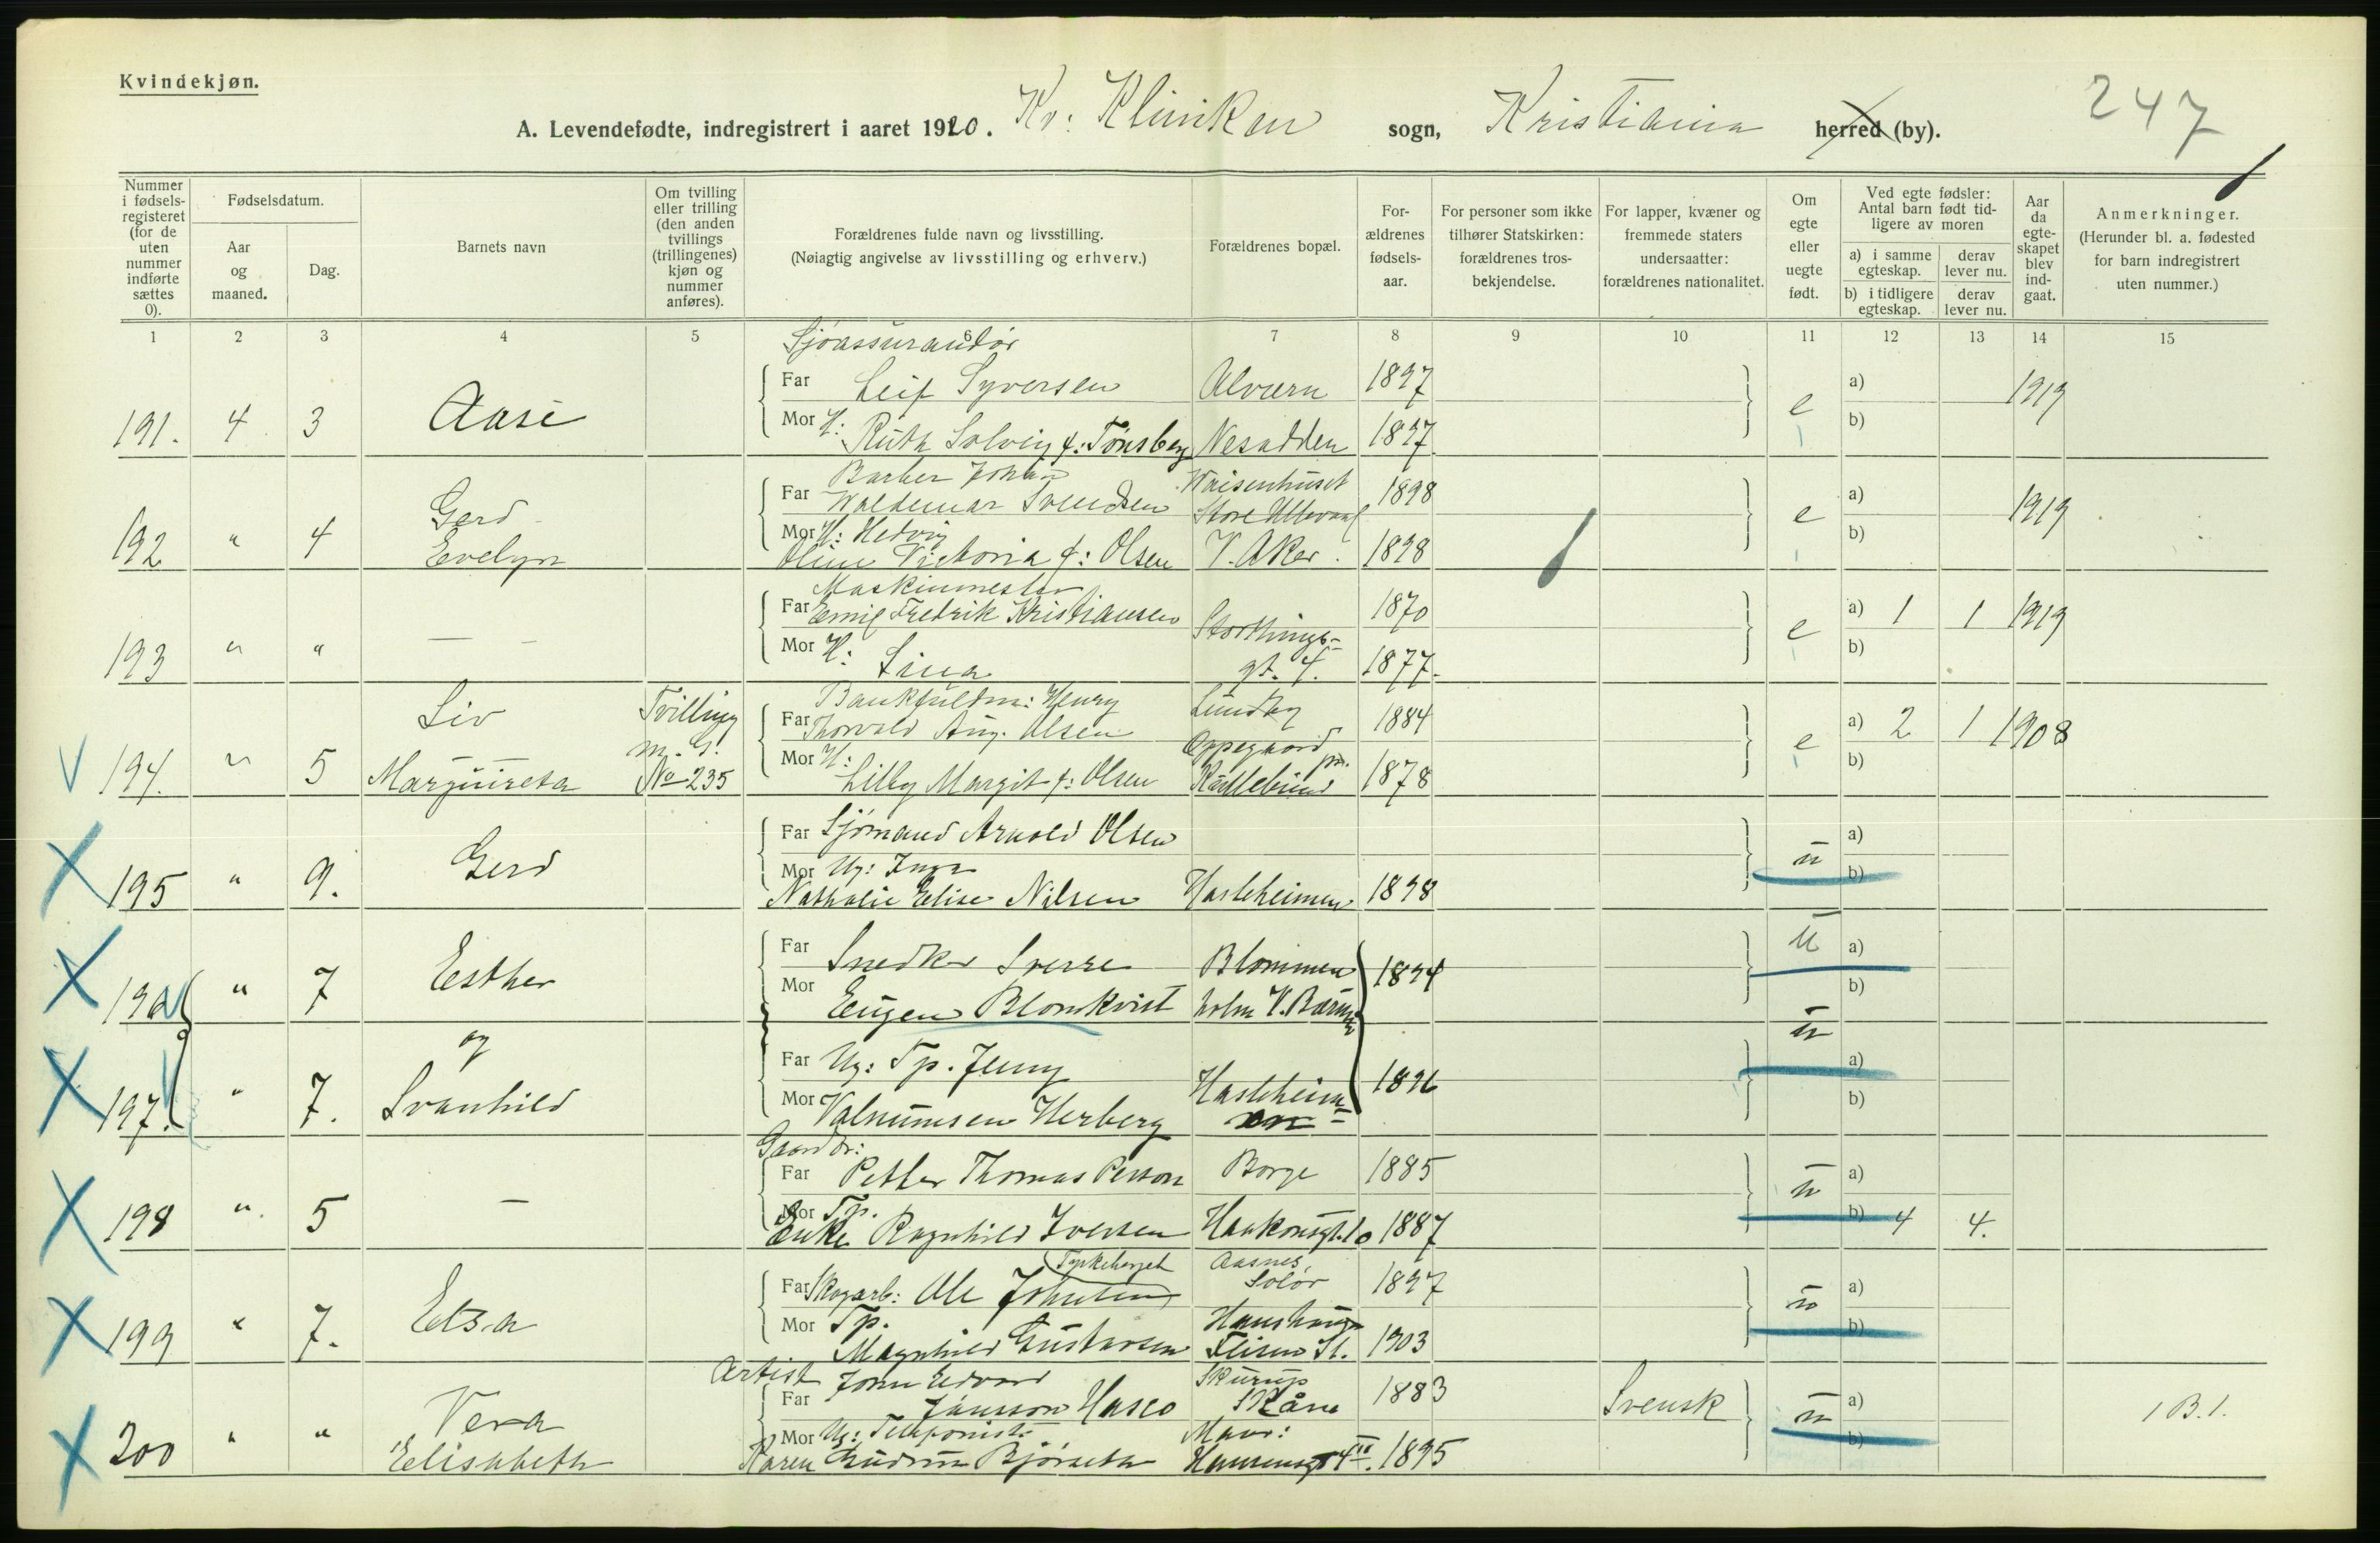 Kvindekjøn.
247
A. Levendefødte, indregistrert i aaret 1920. Kv: Kliniken sogn, Kristiania herred (by).
Nummer i fødselsregisteret (for de uten nummer indførte sættes 0).
Fødselsdatum.
Aar og maaned.
Dag.
Barnets navn
Om tvilling eller trilling (den anden tvillings (trillingenes) kjøn og nummer anføres).
Forældrenes fulde navn og livsstilling.
(Nøiagtig angivelse av livsstilling og erhverv.)
Forældrenes bopæl.
Forældrenes fødselsaar.
For personer som ikke tilhører Statskirken: forældrenes trosbekjendelse.
For lapper, kvæner og fremmede staters undersaatter: forældrenes nationalitet.
Om egte eller uegte født.
Ved egte fødsler: Antal barn født tidligere av moren
a) i samme egteskap.
derav lever nu.
b) i tidligere egteskap.
derav lever nu.
Aar da egteskapet blev indgaat.
Anmerkninger.
(Herunder bl. a. fødested for barn indregistrert uten nummer.)
1 2 3 4 5 6 7 8 9 10 11 12 13 14 15
Sjøassurandør
Far Leif Syversen Alværn 1897 a)
191. 4 3 Aase e 1919
Mor H: Ruth Solveig f: Tønsberg Nesodden 1897 b)
Barber Johan Waisenhuset
Far Waldemar Svendsen Store Ullevaal 1898 a)
192 " 4 Gerd Evelyn e 1919
Mor H: Hedvig
Oline Victoria f: Olsen V. Aker. 1898 b)
Maskinmester
Far Emil Fredrik Kristiansen Storthings- 1870 a) 1 1 1919
193 " " — — e
Mor H: Lina gt. 4. 1877. b)
Bankfuldm: Henry
Far Thorvald Aug. Olsen Oppegaard 1884 a) 2 1 1908
194. " 5 Liv Tvilling m. G. No 235 e
Mor H: Lilly Margit f: Olsen 1878 b)
Far Sjømand Arnold Olsen a)
195 " 9. Gerd u
Mor Ug: Inga
Nathalie Elise Nilsen Hasleheimen 1898 b)
Far Snedker Sverre Blommen 1894 u a)
196 " 7 Esther
Mor Eugen Blomkvist holm V. Bærum b)
og u
Far Ug: Tp. Jenny a)
197. " 7. Svanhild Hasleheimen 1896
Mor Herberg b)
Gaardbr:
Far Petter Thomas Person Borge 1885 a)
198 " 5 — u
Mor Tp.
Enke Ragnhild Iversen Haakonsgt. 10 1887 b) 4 4.
Aasnes,
Far Skogarb: Ole Johnsen Solør 1897 a)
199 " 7. u
Mor Tp.
Magnhild Gustavsen Flisen St. 1903 b)
Artist John Edvard Skurup
Far Jönsson Hasco Skåne 1883 Svensk a)
200 " " Vera Elisabeth u 1 B. 1.
Mor Ug: Telefonist
Karen Gudrun Bjørseth 1895 b)